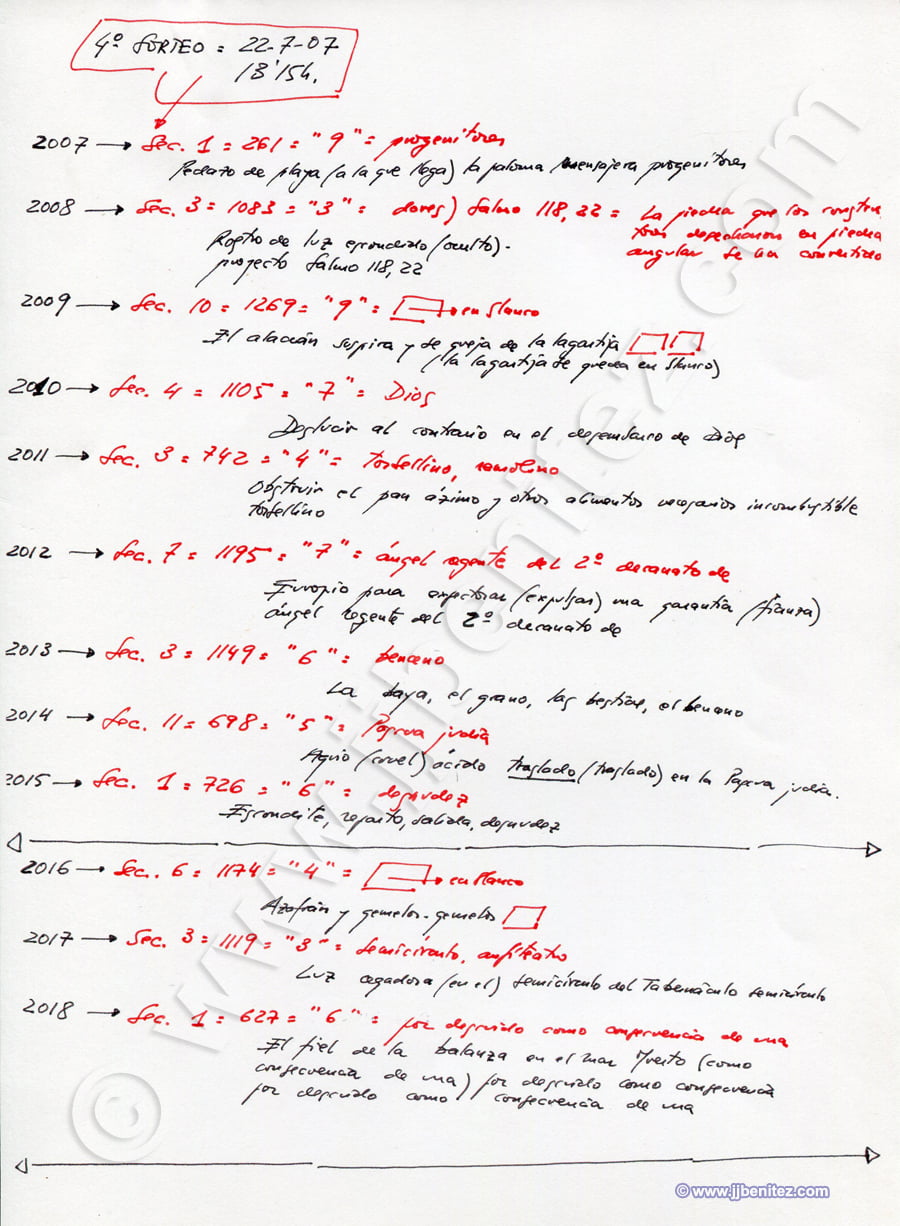 4º SORTEO = 22-7-07
13'15h.
2007 → Sec. 1 = 261 = "9" = progenitores
Pedazo de playa (a la que llega) la paloma mensajera progenitores
2008 → Sec. 3 = 1083 = "3" = dores) Salmo 118, 22 = La piedra que los construc
tores desecharon en piedra
angular se ha convertido
Rostro de luz escondido (oculto) -
proyecto Salmo 118, 22
2009 → Sec. 10 = 1269 = "9" = → en blanco
El alacrán suspira y se queja de la lagartija
(la lagartija se queda en blanco)
2010 → Sec. 4 = 1105 = "7" = Dios
Deslucir al contrario en el desembarco de Dios
2011 → Sec. 3 = 742 = "4" = torbellino, remolino
Obstruir el pan ázimo y otros alimentos necesarios incombustible
torbellino
2012 → Sec. 7 = 1195 = "7" = ángel regente del 2º decanato de
Europio para expectorar (expulsar) una garantía (fianza)
ángel regente del 2º decanato de
2013 → Sec. 3 = 1149 = "6" = benceno
La baya, el grano, las bestias, el benceno
2014 → Sec. 11 = 698 = "5" = Pascua judía
Agrio (cruel) ácido traslado (traslado) en la Pascua judía.
2015 → Sec. 1 = 726 = "6" = desnudez
Escondite, reparto, salida, desnudez
2016 → Sec. 6 = 1174 = "4" = → en blanco
Azafrán y gemelos-gemelos
2017 → Sec. 3 = 1119 = "3" = semicírculo, anfiteatro
Luz cegadora (en el) semicírculo del Tabernáculo semicírculo
2018 → Sec. 1 = 627 = "6" = por descuido como consecuencia de una
El fiel de la balanza en el mar Muerto (como
consecuencia de una) por descuido como consecuencia
por descuido como consecuencia de una
© www.jjbenitez.com
© www.jjbenitez.com